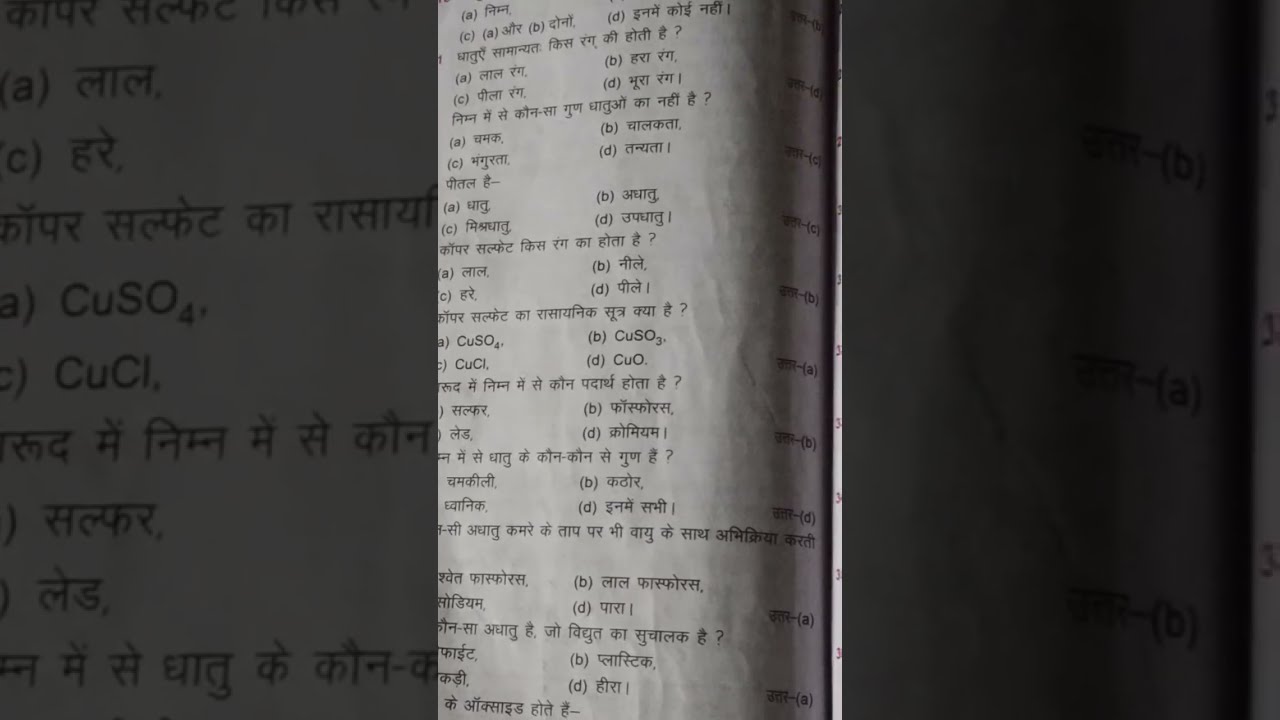 (a) निम्न,
(c) (a) और (b) दोनों, (d) इनमें कोई नहीं।
धातुएँ सामान्यतः किस रंग की होती है ?
(a) लाल रंग, (b) हरा रंग,
(c) पीला रंग, (d) भूरा रंग। उत्तर–(d)
निम्न में से कौन-सा गुण धातुओं का नहीं है ?
(a) चमक, (b) चालकता,
(c) भंगुरता, (d) तन्यता। उत्तर–(c)
पीतल है–
(a) धातु, (b) अधातु,
(c) मिश्रधातु, (d) उपधातु। उत्तर–(c)
कॉपर सल्फेट किस रंग का होता है ?
(a) लाल, (b) नीले,
(c) हरे, (d) पीले। उत्तर–(b)
कॉपर सल्फेट का रासायनिक सूत्र क्या है ?
(a) CuSO₄, (b) CuSO₃,
(c) CuCl, (d) CuO. उत्तर–(a)
रूद में निम्न में से कौन पदार्थ होता है ?
) सल्फर, (b) फॉस्फोरस,
) लेड, (d) क्रोमियम। उत्तर–(b)
म्न में से धातु के कौन-कौन से गुण हैं ?
चमकीली, (b) कठोर,
ध्वानिक, (d) इनमें सभी। उत्तर–(d)
न-सी अधातु कमरे के ताप पर भी वायु के साथ अभिक्रिया करती
श्वेत फास्फोरस, (b) लाल फास्फोरस,
सोडियम, (d) पारा। उत्तर–(a)
कौन-सा अधातु है, जो विद्युत का सुचालक है ?
फाईट, (b) प्लास्टिक,
कड़ी, (d) हीरा। उत्तर–(a)
के ऑक्साइड होते हैं–